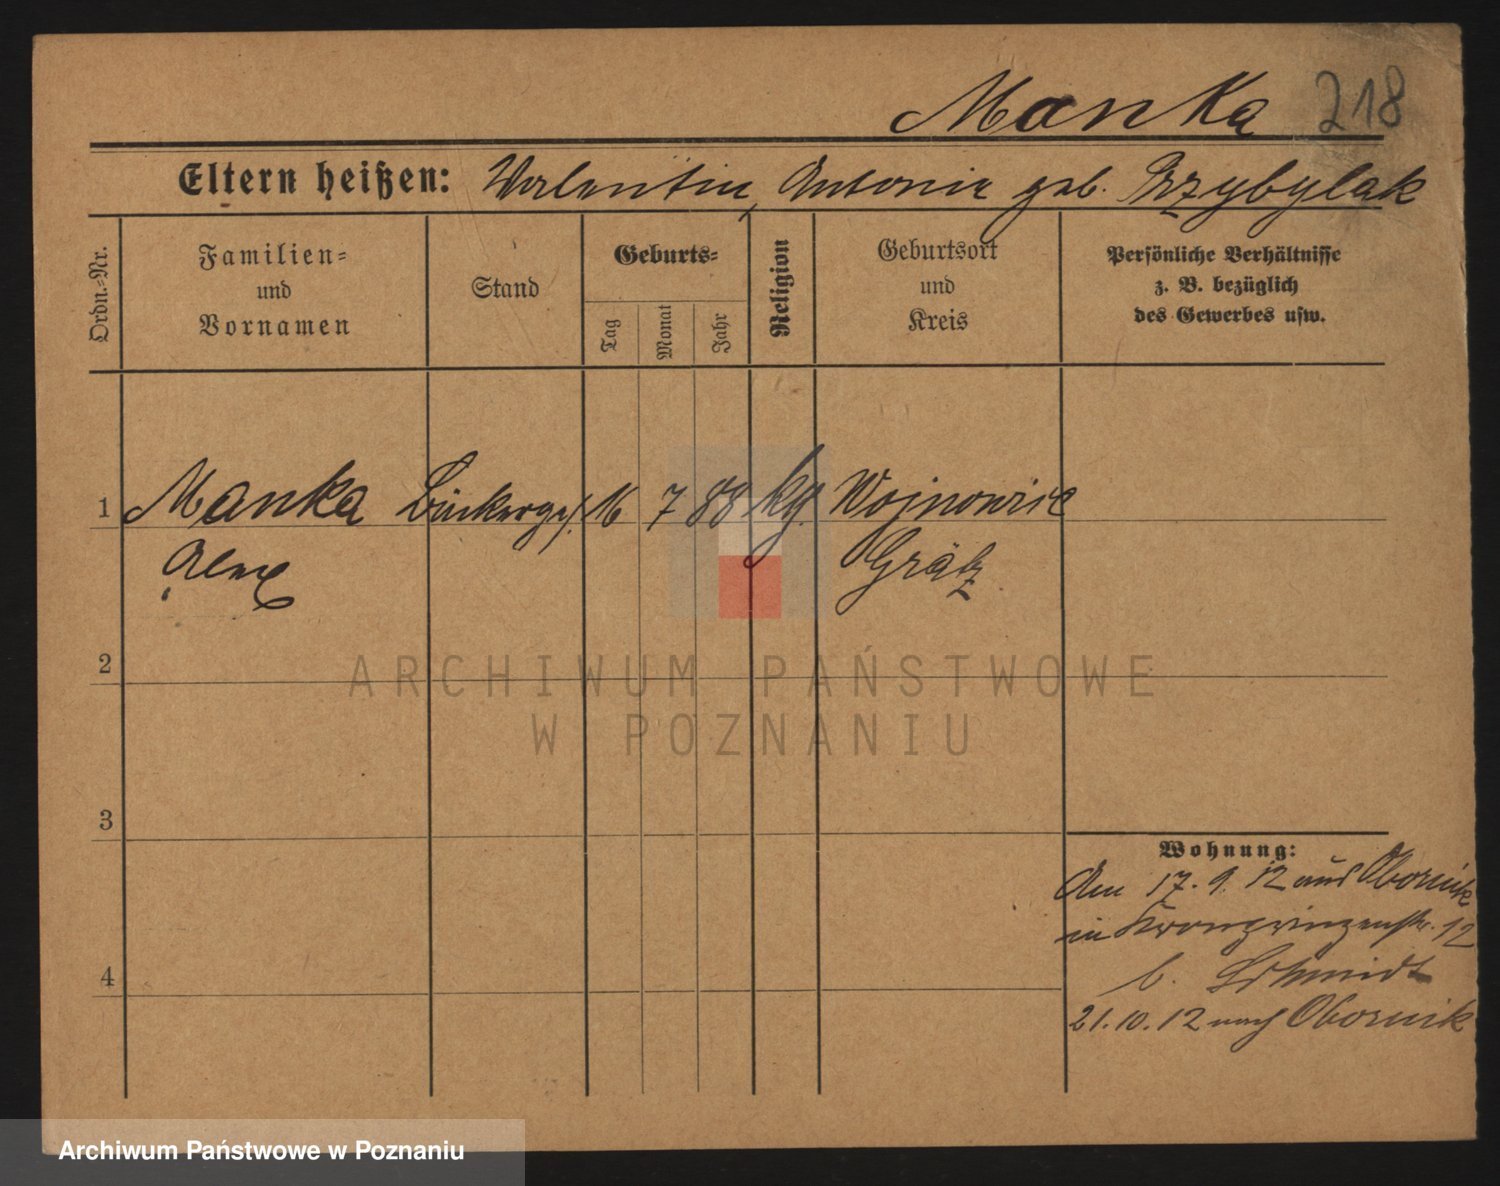 Manka 218
Eltern heißen: Valentin, Antonie geb. Przybylak
Ordn.-Nr.
Familien-
und
Vornamen
Stand
Geburts-
Tag
Monat
Jahr
Religion
Geburtsort
und
Kreis
Persönliche Verhältnisse
z. B. bezüglich
des Gewerbes usw.
1 Manka Bäckerges. 16 7 88 kg. Wojnowice
Alex Grätz
2
3
4
Wohnung:
Am 17. 9. 12 aus Obornik
in Kronprinzenstr. 12
b. Schmidt
21. 10. 12 nach Obornik
ARCHIWUM PAŃSTWOWE
W POZNANIU
Archiwum Państwowe w Poznaniu